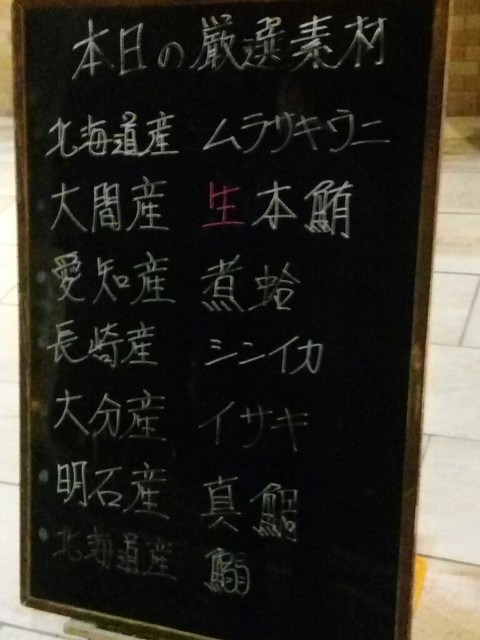 本日の厳選素材
北海道産 ムラサキウニ
大間産 生本鮪
愛知産 煮蛤
長崎産 シンイカ
大分産 イサキ
明石産 真鯛
北海道産 鰯